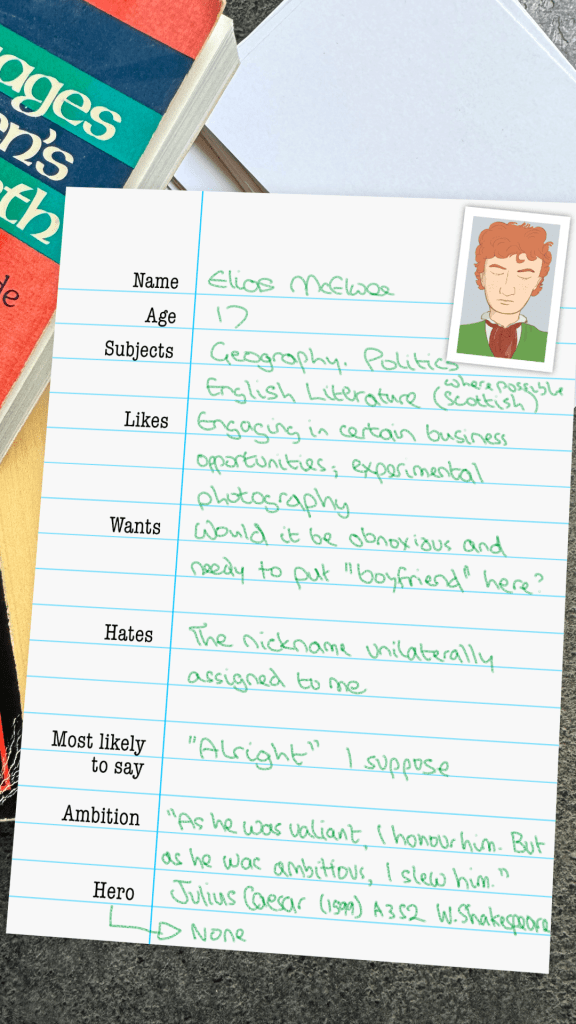 ages
en's
rth
de
Name Elios McElwee
Age 17
Subjects Geography. Politics
English Literature (where possible Scottish)
Likes Engaging in certain business
opportunities; experimental
photography
Wants Would it be obnoxious and
needy to put "boyfriend" here?
Hates The nickname unilaterally
assigned to me
Most likely "Alright" I suppose
to say
Ambition "As he was valiant, I honour him. But
as he was ambitious, I slew him."
Hero Julius Caesar (1599) A3S2 W. Shakespeare
None